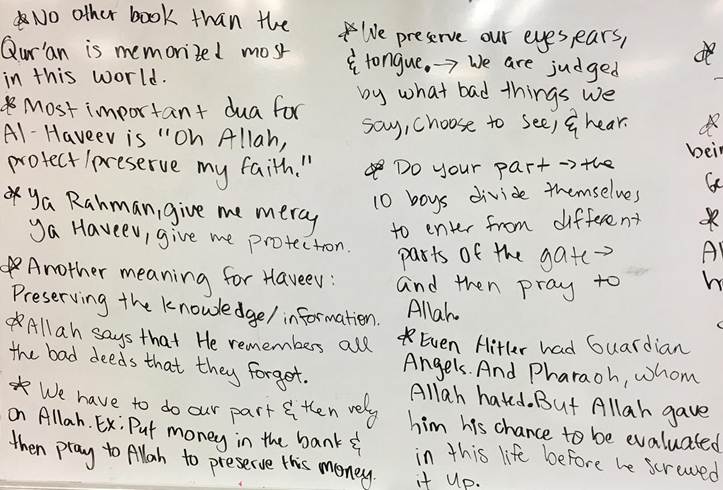 * No other book than the
Qur'an is memorized most
in this world.
* Most important dua for
Al-Haveev is "Oh Allah,
protect/preserve my faith."
* Ya Rahman, give me mercy
Ya Haveev, give me protection.
* Another meaning for Haveev:
Preserving the knowledge/information.
* Allah says that He remembers all
the bad deeds that they forgot.
* We have to do our part & then rely
on Allah. Ex: Put money in the bank &
then pray to Allah to preserve this money.
* We preserve our eyes, ears,
& tongue. → We are judged
by what bad things we
say, choose to see, & hear.
* Do your part → the
10 boys divide themselves
to enter from different
parts of the gate →
and then pray to
Allah.
* Even Hitler had Guardian
Angels. And Pharaoh, whom
Allah hated. But Allah gave
him his chance to be evaluated
in this life before he screwed
it up.
*
*
bein
*
Al